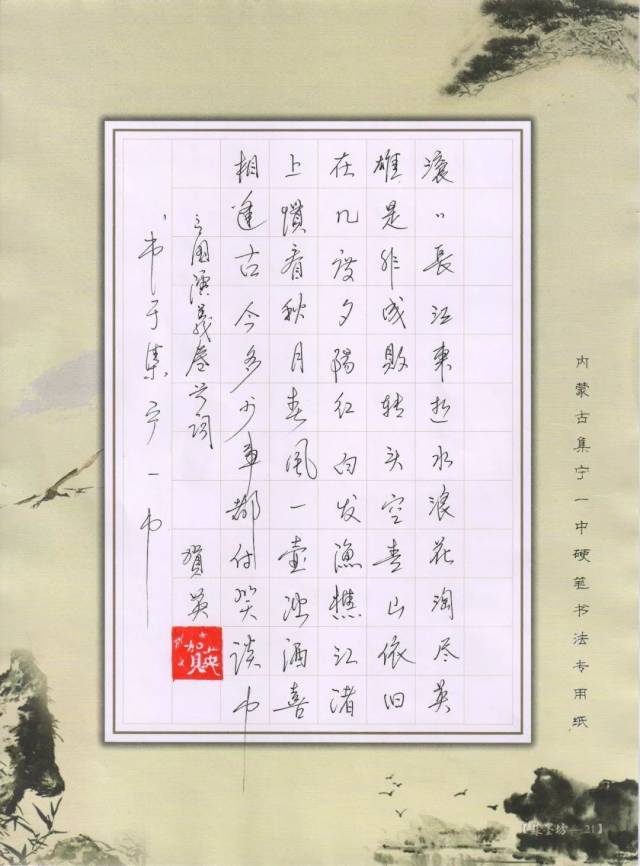 内蒙古集宁一中硬笔书法专用纸
滚〻長江東逝水浪花淘尽英
雄是非成败转头空青山依旧
在几度夕陽红白发漁樵江渚
上慣看秋月春風一壶浊酒喜
相逢古今多少事都付笑谈中
三國演義卷首词 賀英
书于集宁一中